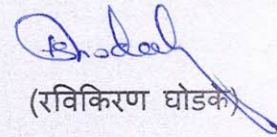 (रविकिरण घोडके)